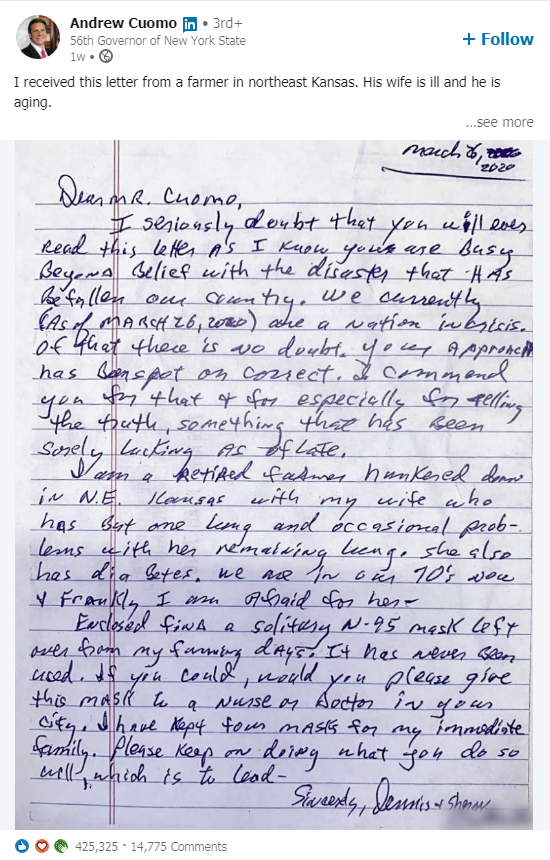 Andrew Cuomo in • 3rd+
56th Governor of New York State
1w •
+ Follow
I received this letter from a farmer in northeast Kansas. His wife is ill and he is
aging.
...see more
March 26,
2020
Dear MR. Cuomo,
I seriously doubt that you will ever
Read this letter As I know you are Busy
Beyond Belief with the disaster that HAs
Befallen our country. We currently
(As of MARCH 26, 2020) are a Nation in crisis.
Of that there is no doubt. your Approach
has Been spot on correct. I commend
you for that & for especially for telling
the truth, something that has Been
Sorely lacking As of late.
I am a Retired farmer hunkered down
in N.E. Kansas with my wife who
has But one lung and occasional prob-
lems with her remaining lung. She also
has diabetes. We are in our 70's now
& Frankly I am Afraid for her-
Enclosed find a solitary N-95 mask left
over from my farming days. It has never Been
used. If you could, would you please give
this mask to a Nurse or Doctor in your
City. I have kept four MASKs for my immediate
family. Please keep on doing what you do so
well, which is to lead-
Sincerely, Dennis & Sharon
425,325 · 14,775 Comments